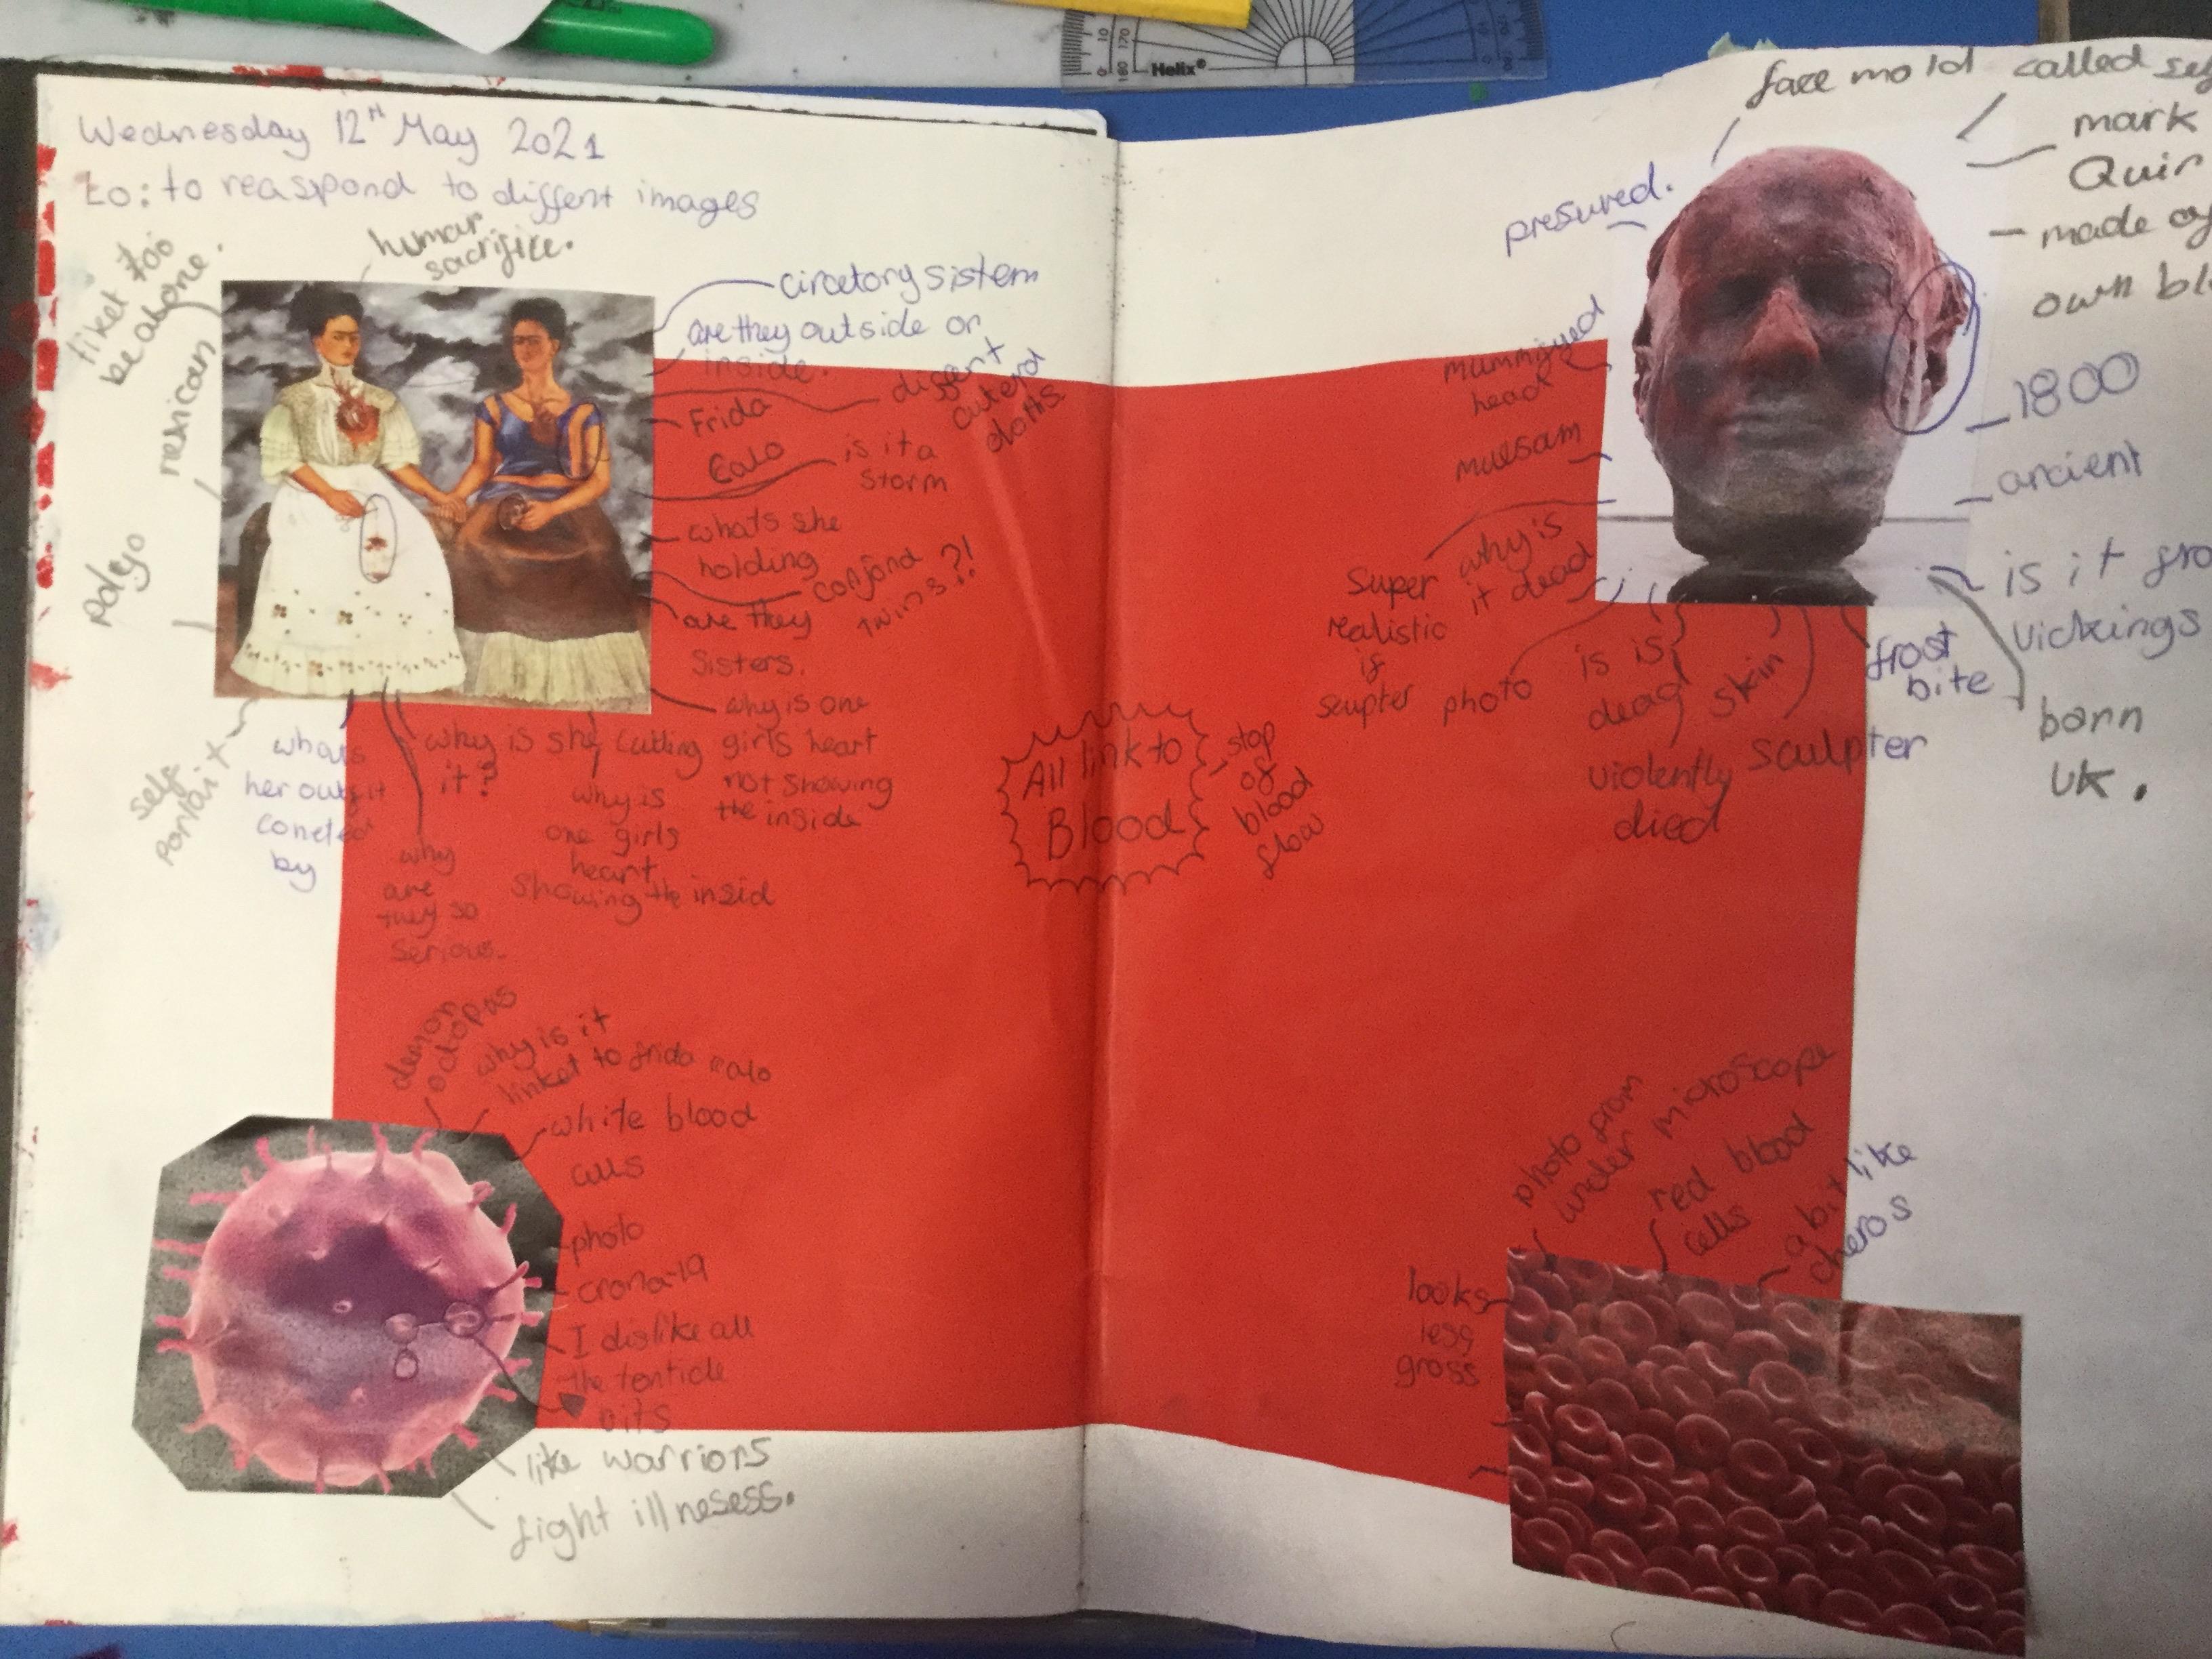 Helix®
10 170
0 180
Wednesday 12th May 2021
Lo: to reaspond to diffent images
human
sacrifice.
liket too
be alone.
mexican
polyo
self
portait
circetory sistem
are they outside or
inside.
diffent
cuterd
cloths
Frida
Calo
is it a
storm
whats she
holding
conjond
twins?!
are they
Sisters.
why is one
girls heart
not showing
the inside
whats
her outfit
coneted
by
why is she cutting
it?
why
are
they so
serious.
why is
one girls
heart
showing the insid
All link to
Blood
stop
of
blood
flow
demon
octopus
why is it
linket to frida calo
white blood
cells
photo
crona-19
I dislike all
the tenticle
bits
like warriors
fight illnesess.
face mold called self
mark
Quin
made of
own blo
presured.
mummifyed
head
muesam
1800
ancient
is it fro
vickings
born
UK.
Super
realistic
if
scupter
why is
it dead
photo
is is
dead
skin
frost
bite
violently
died
sculpter
photo from
under microscope
red blood
cells
a bit like
cheros
looks
less
gross